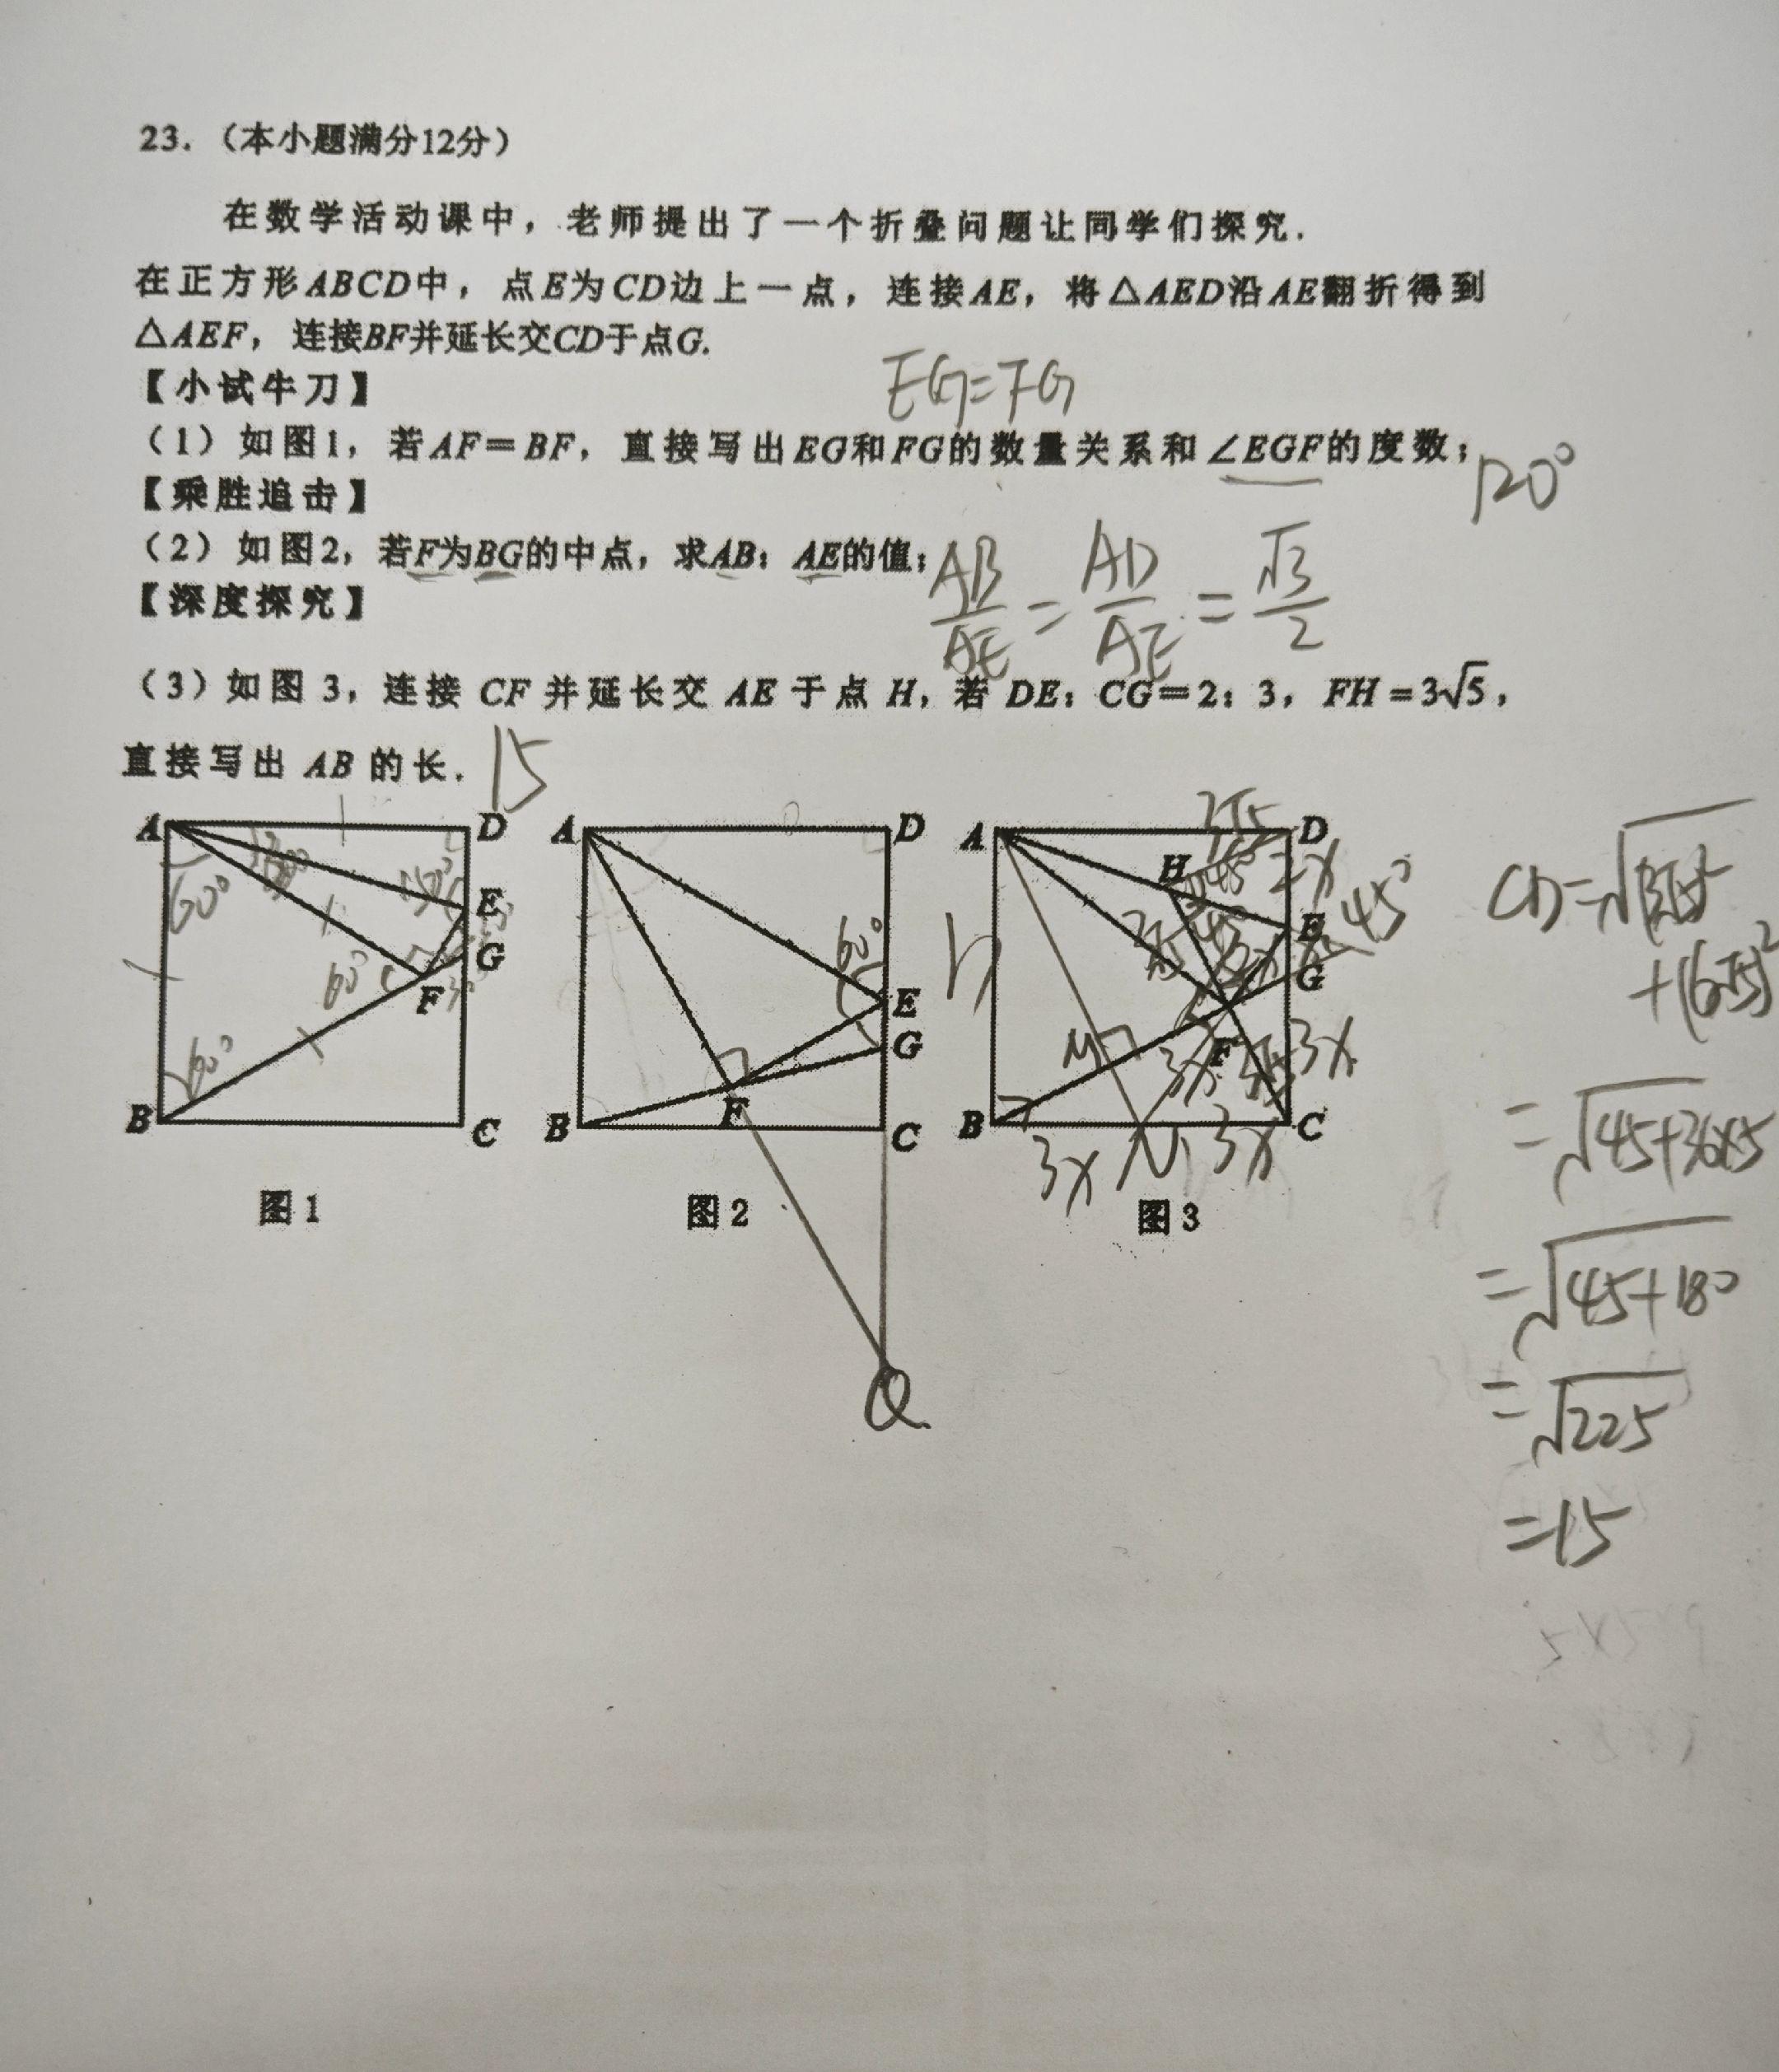 23.（本小题满分12分）
在数学活动课中，老师提出了一个折叠问题让同学们探究.
在正方形ABCD中，点E为CD边上一点，连接AE，将△AED沿AE翻折得到
△AEF，连接BF并延长交CD于点G.
EG=FG
【小试牛刀】
（1）如图1，若AF=BF，直接写出EG和FG的数量关系和∠EGF的度数；
120°
【乘胜追击】
（2）如图2，若F为BG的中点，求AB：AE的值；
AB/AE = AD/AE = √3/2
【深度探究】
（3）如图3，连接CF并延长交AE于点H，若DE：CG=2：3，FH=3√5，
直接写出AB的长.
15
A 1 D
60° 45°
E
G
60°
F
60°
B C
图1
A D
60°
E
G
F
B C
Q
图2
A D
H 45° 2x
E 45°
G
M F 3x 3x
B C
3x N 3x
图3
+(6√5)²
=√45+36×5
=√45+180
=√225
=15